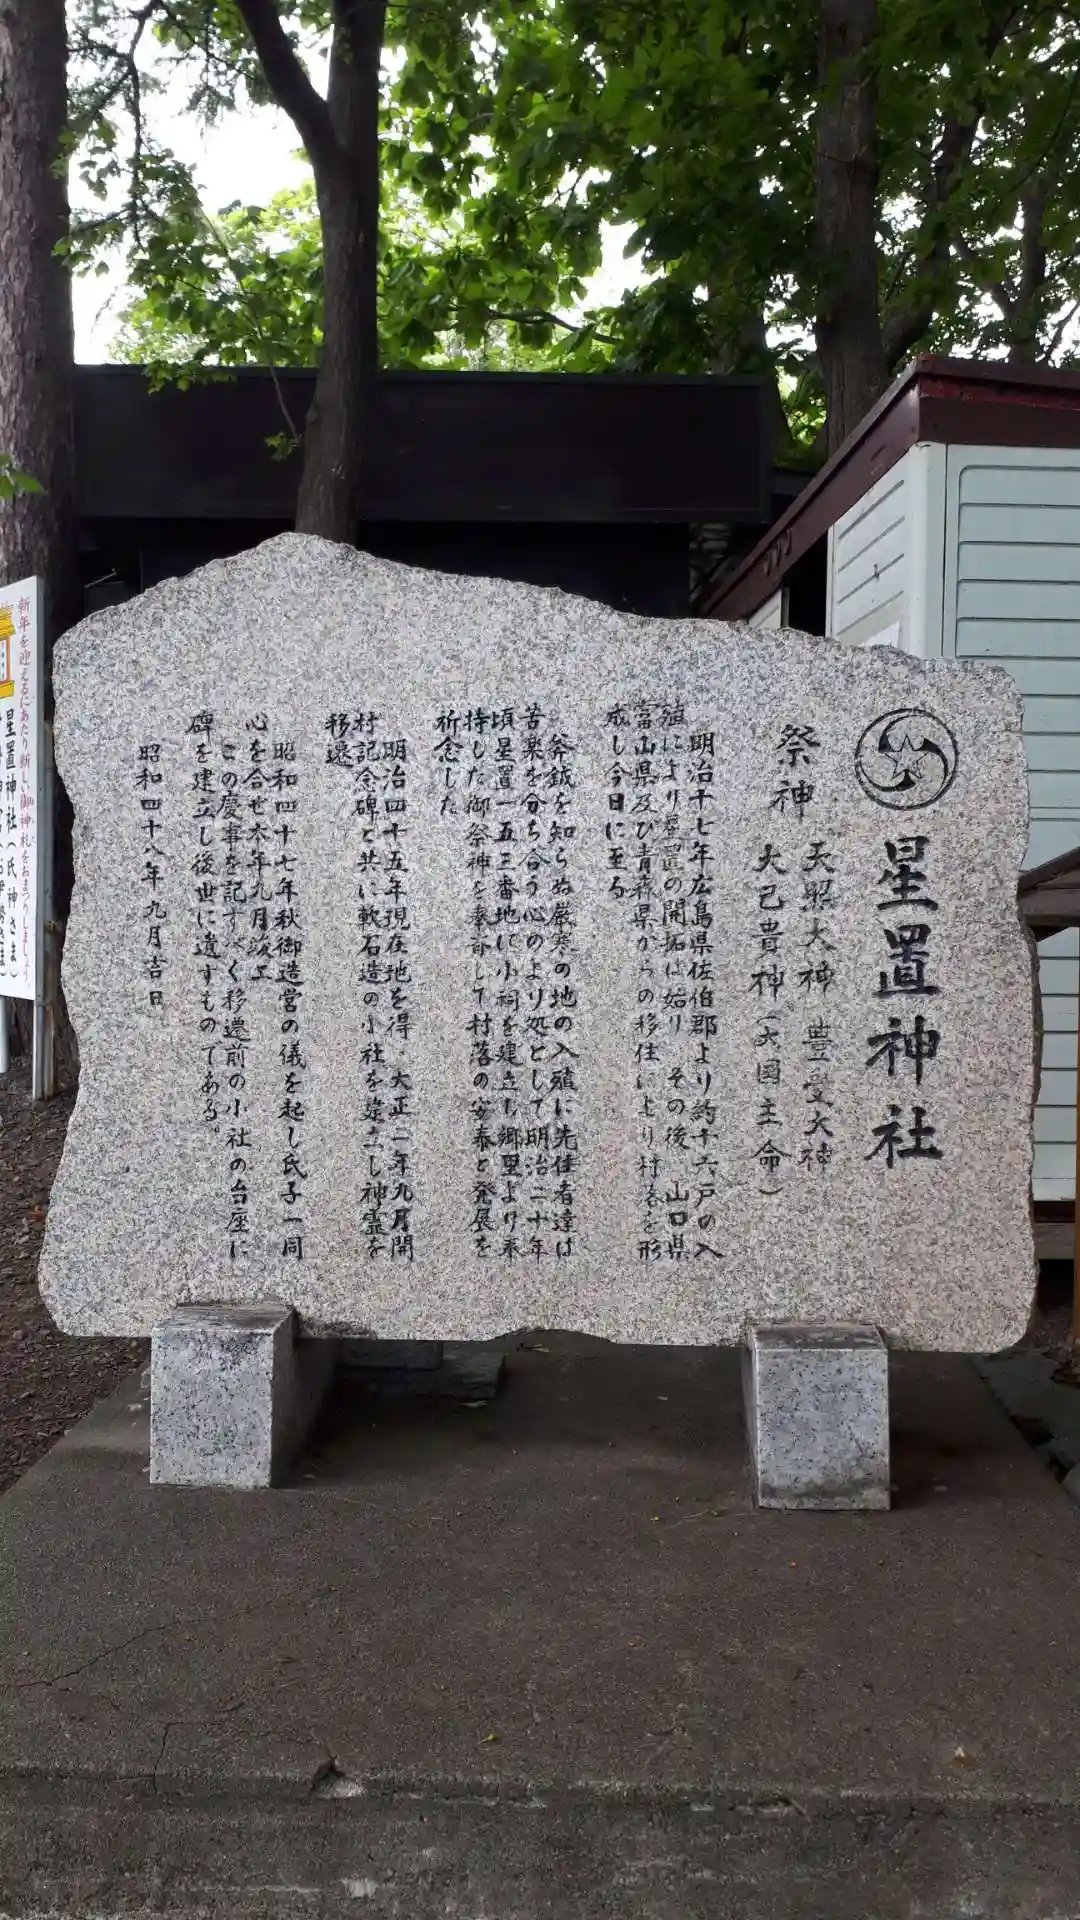 星置神社
祭神
天照大神 豊受大神
大己貴神(大国主命)
明治十七年広島県佐伯郡より約十六戸の入
殖により星置の開拓は始り その後 山口県
富山県及び青森県からの移住により村落を形
成し今日に至る
斧鉞を知らぬ厳寒の地の入殖に先住者達は
苦楽を分ち合う心のより処として明治二十年
頃星置一五三番地に小祠を建立し郷里より奉
持した御祭神を奉斎して村落の安泰と発展を
祈念した
明治四十五年現在地を得 大正二年九月開
村記念碑と共に軟石造の小社を建立し神霊を
移遷
昭和四十七年秋御造営の儀を起し氏子一同
心を合せ本年九月竣工
この慶事を記すべく移遷前の小社の台座に
碑を建立し後世に遺すものである。
昭和四十八年九月吉日
新年を迎えるにあたり新しい御神札をおまつりしましょう
星置神社(氏神さま)